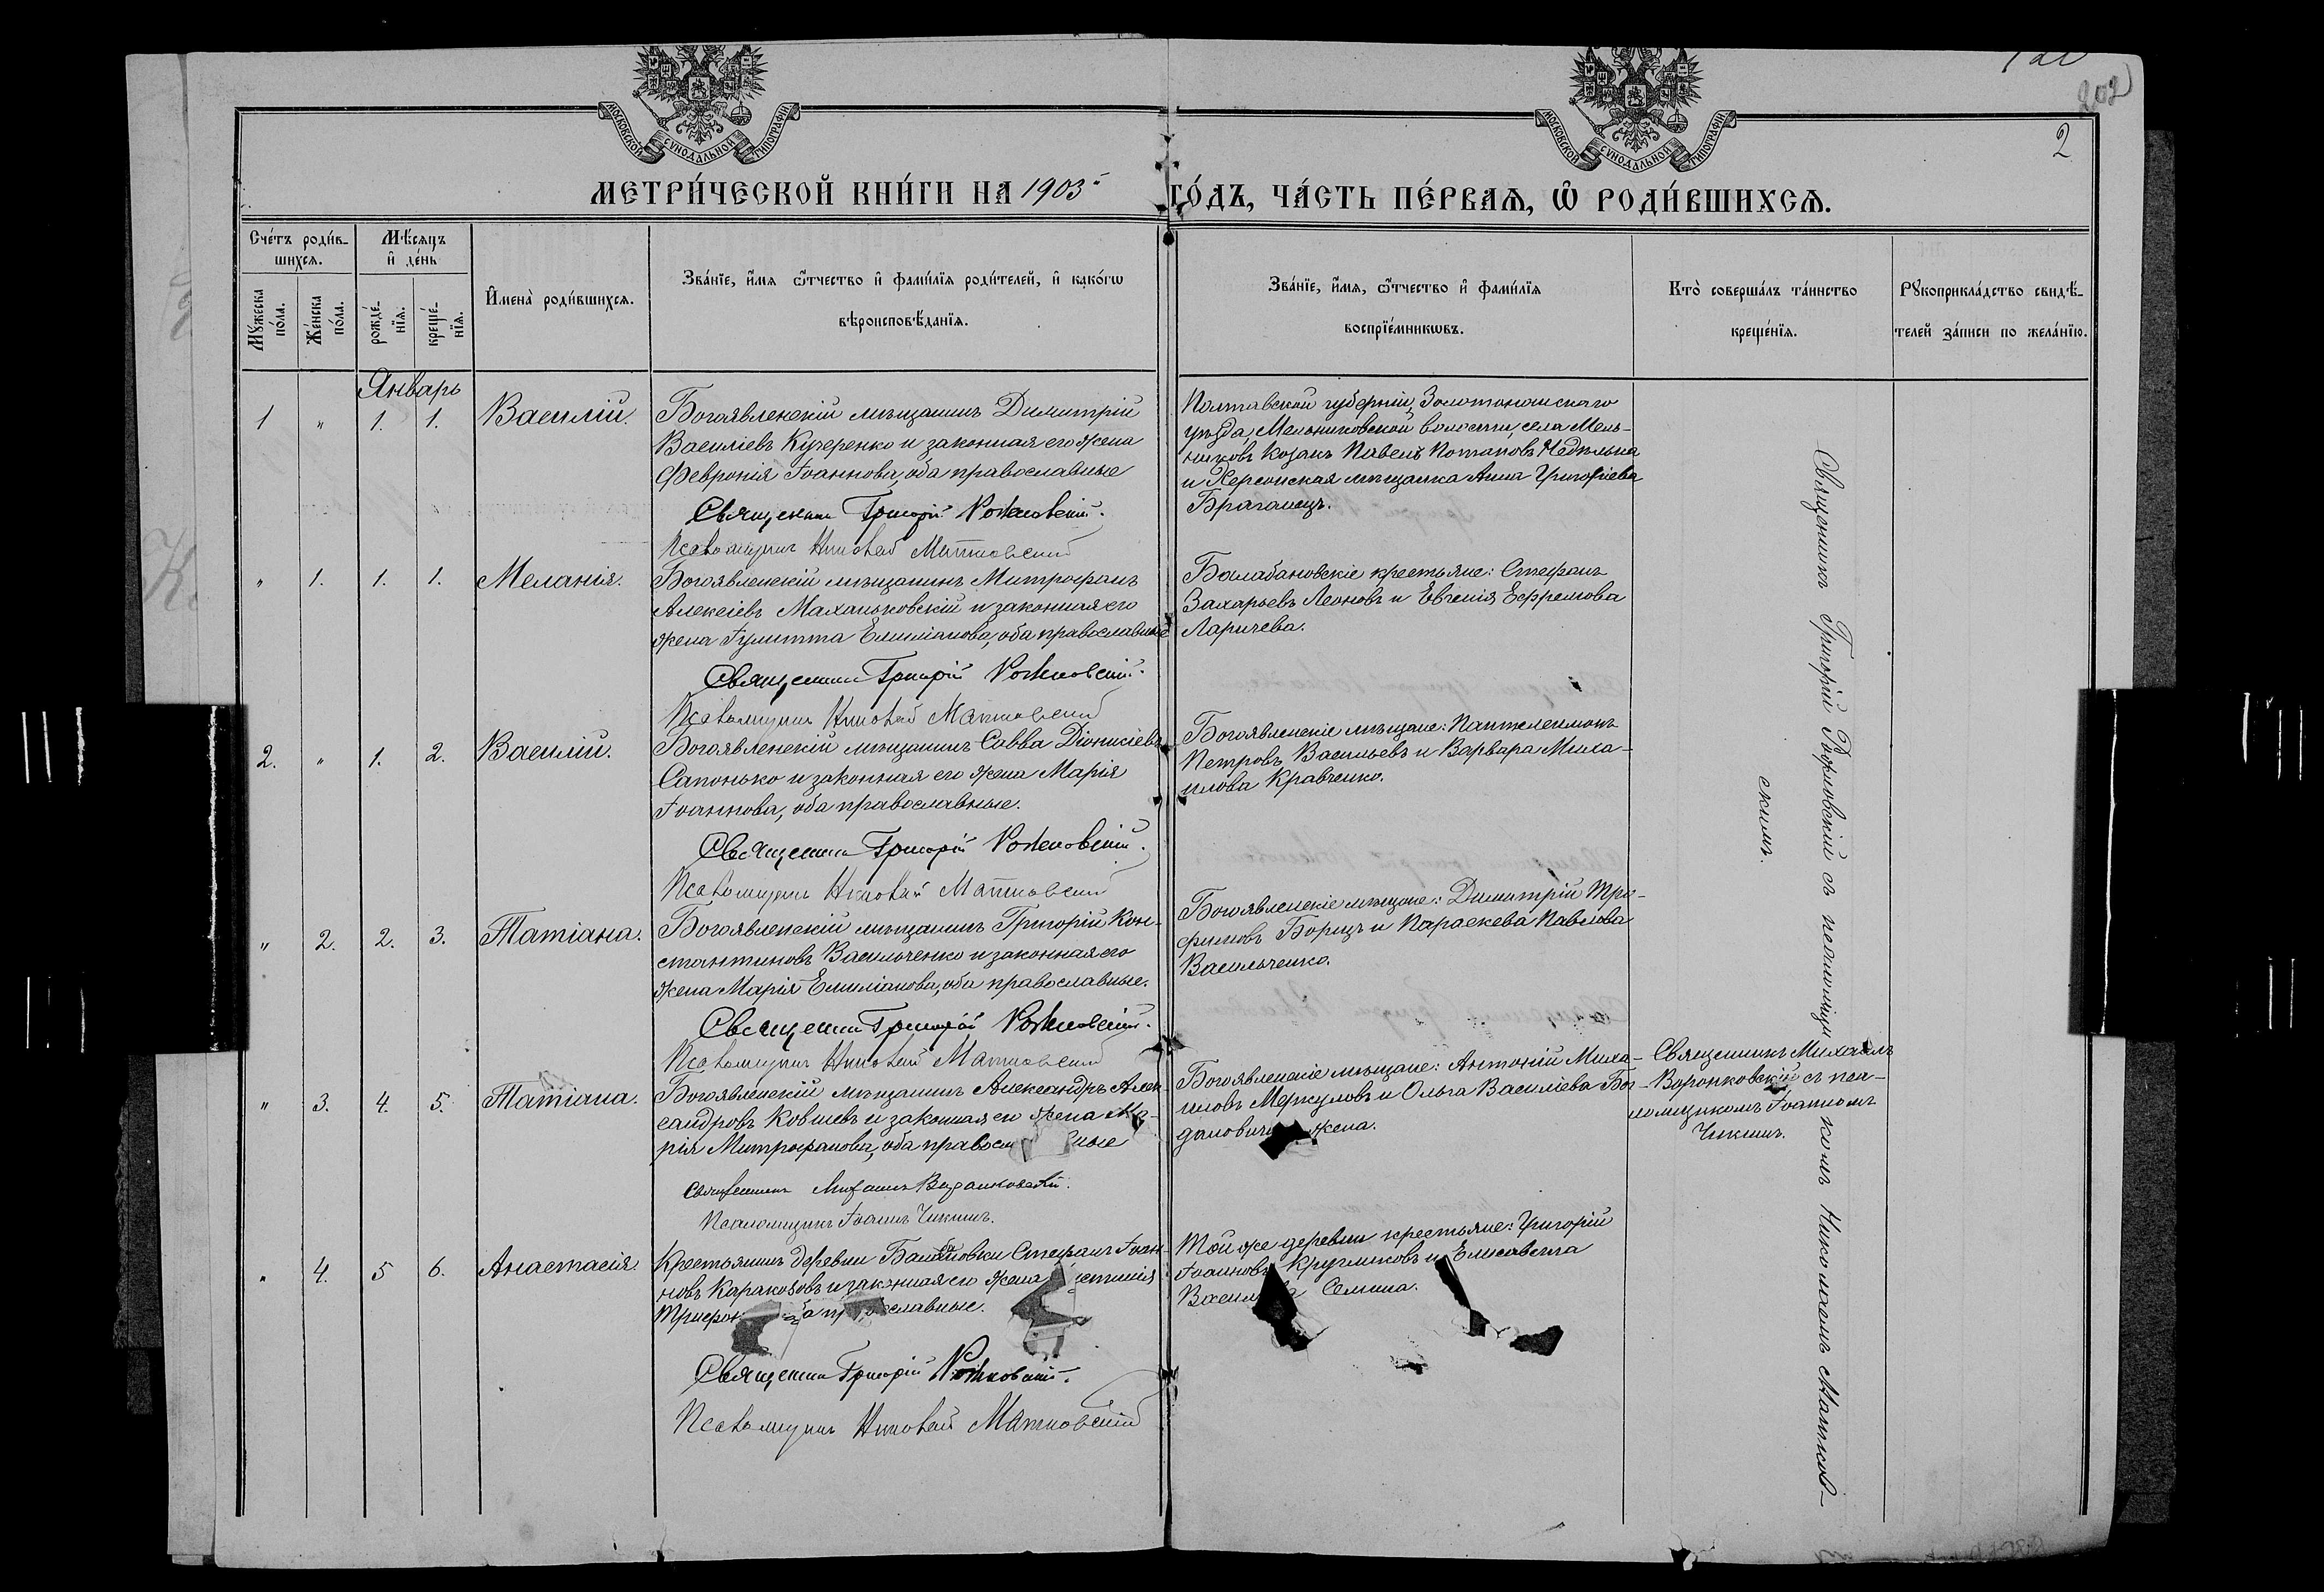 202
2
МОСКОВСКОЙ СѴНОДАЛЬНОЙ ТИПОГРАФІИ
МОСКОВСКОЙ СѴНОДАЛЬНОЙ ТИПОГРАФІИ
МЕТРИ́ЧЕСКОЙ КНИ́ГИ НА 1903й
ГО́ДЪ, ЧА́СТЬ ПЕ́РВАѦ, Ѡ҆ РОДИ́ВШИХСѦ.
Сче́тъ роди́в-
шихсѧ.
Мѣ́сѧцъ
и҆ де́нь
Мꙋ́жеска
по́ла.
Же́нска
по́ла.
рожде́-
нїѧ.
креще́-
нїѧ.
И҆мена̀ роди́вшихсѧ.
Зва́нїе, и҆́мѧ ѻ҆́тчество и҆ фами́лїѧ роди́телей, и҆ како́гѡ
вѣроисповѣ́данїѧ.
Зва́нїе, и҆́мѧ, ѻ҆́тчество и҆ фами́лїѧ
воспрїе́мникѡвъ.
Кто̀ соверша́лъ та́инство
креще́нїѧ.
Рꙋкоприкла́дство свидѣ́-
телей за́писи по жела́нїю.
Январь
1 " 1. 1. Василій.
Богоявленскій мѣщанинъ Димитрій
Василіевъ Кучеренко и законная его жена
Февронія Іоаннова, оба православные
Священникъ Григорій
Псаломщикъ Николай Матковскій
Полтавской губерніи, Золотоношскаго
уѣзда, Мельниковской волости, села Мель-
никовъ козакъ Павелъ Потаповъ Недѣлька
и Херсонская мѣщанка Анна Григоріева
Браганецъ.
" 1. 1. 1. Меланія.
Богоявленскій мѣщанинъ Митрофанъ
Алексіевъ Маханьковскій и законная его
жена Іулитта Емиліанова, оба православные
Священникъ Григорій
Псаломщикъ Николай Матковскій
Балабановскіе крестьяне: Стефанъ
Захарьевъ Леоновъ и Евгенія Ефремова
Ларичева.
2. " 1. 2. Василій.
Богоявленскій мѣщанинъ Савва Діонисіевъ
Сапонько и законная его жена Марія
Іоаннова, оба православные.
Священникъ Григорій
Псаломщикъ Николай Матковскій
Богоявленскіе мѣщане: Пантелеимонъ
Петровъ Васильевъ и Варвара Миха-
илова Кравченко.
" 2. 2. 3. Татіана.
Богоявленскій мѣщанинъ Григорій Кон-
стантиновъ Васильченко и законная его
жена Марія Емиліанова, оба православные.
Священникъ Григорій
Псаломщикъ Николай Матковскій
Богоявленскіе мѣщане: Димитрій Тро-
фимовъ Борщъ и Параскева Павлова
Васильченко.
" 3. 4. 5. Татіана.
Богоявленскій мѣщанинъ Александръ Алек-
сандровъ Ковшевъ и законная его жена Ма-
рія Митрофанова, оба правосл ные
Священникъ Михаилъ Воронковскій.
Псаломщикъ Іоаннъ Чикишъ.
Богоявленскіе мѣщане: Антоній Миха-
иловъ Меркуловъ и Ольга Василіева Бог-
жена.
Священникъ Михаилъ
Воронковскій съ пса-
ломщикомъ Іоанномъ
Чикишъ.
" 4. 5 6. Анастасія.
Крестьянинъ деревни Балабановки Стефанъ Іоан-
новъ Караковъ и законная его жена
православные.
Священникъ Григорій
Псаломщикъ Николай Матковскій
Той же деревни крестьяне: Григорій
Іоанновъ Кругликовъ и Елисавета
Семина.
Священникъ Григорій съ псаломщи-
комъ Николаемъ Матков-
скимъ.